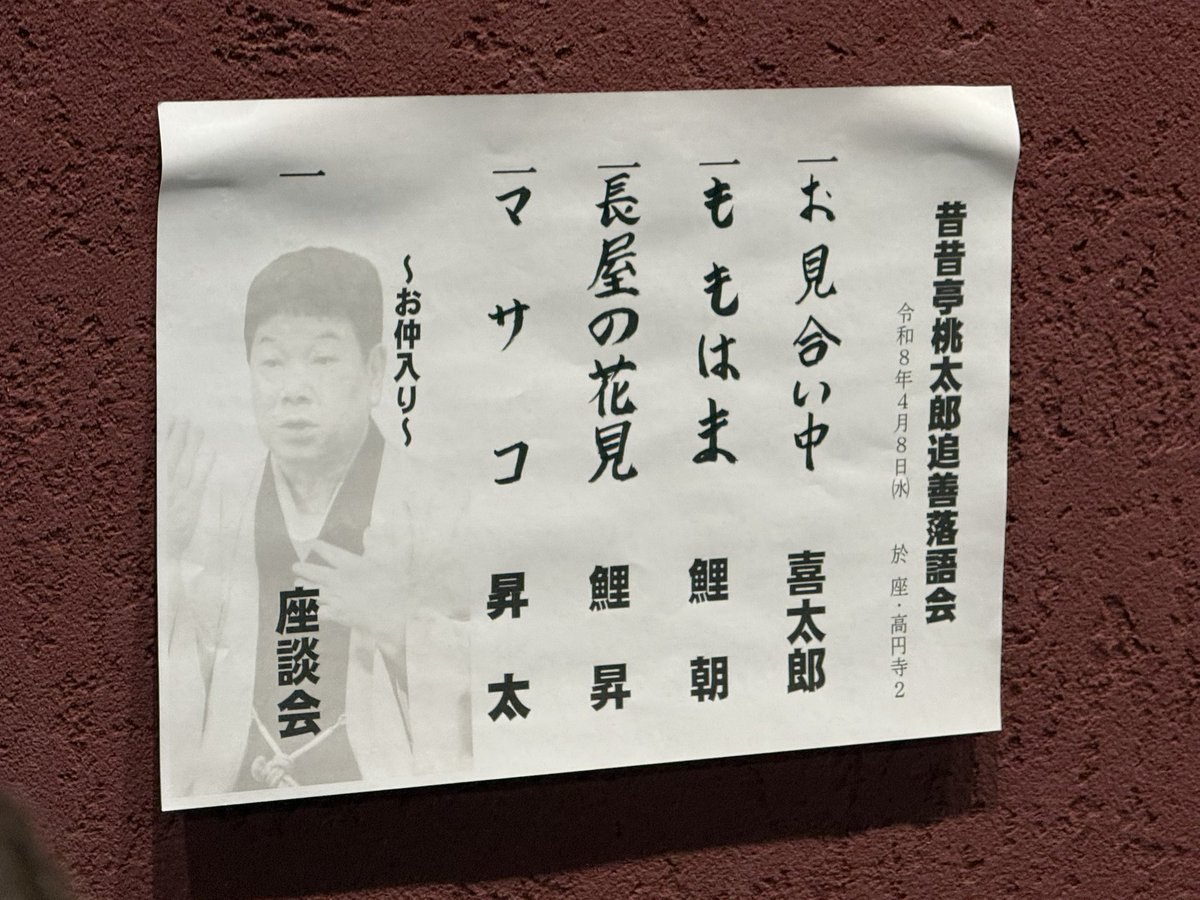 昔昔亭桃太郎追善落語会
令和8年4月8日㈬　於 座・高円寺2
一 お見合い中　喜太郎
一 ももはま　鯉朝
一 長屋の花見　鯉昇
一 マサコ　昇太
～お仲入り～
一　座談会